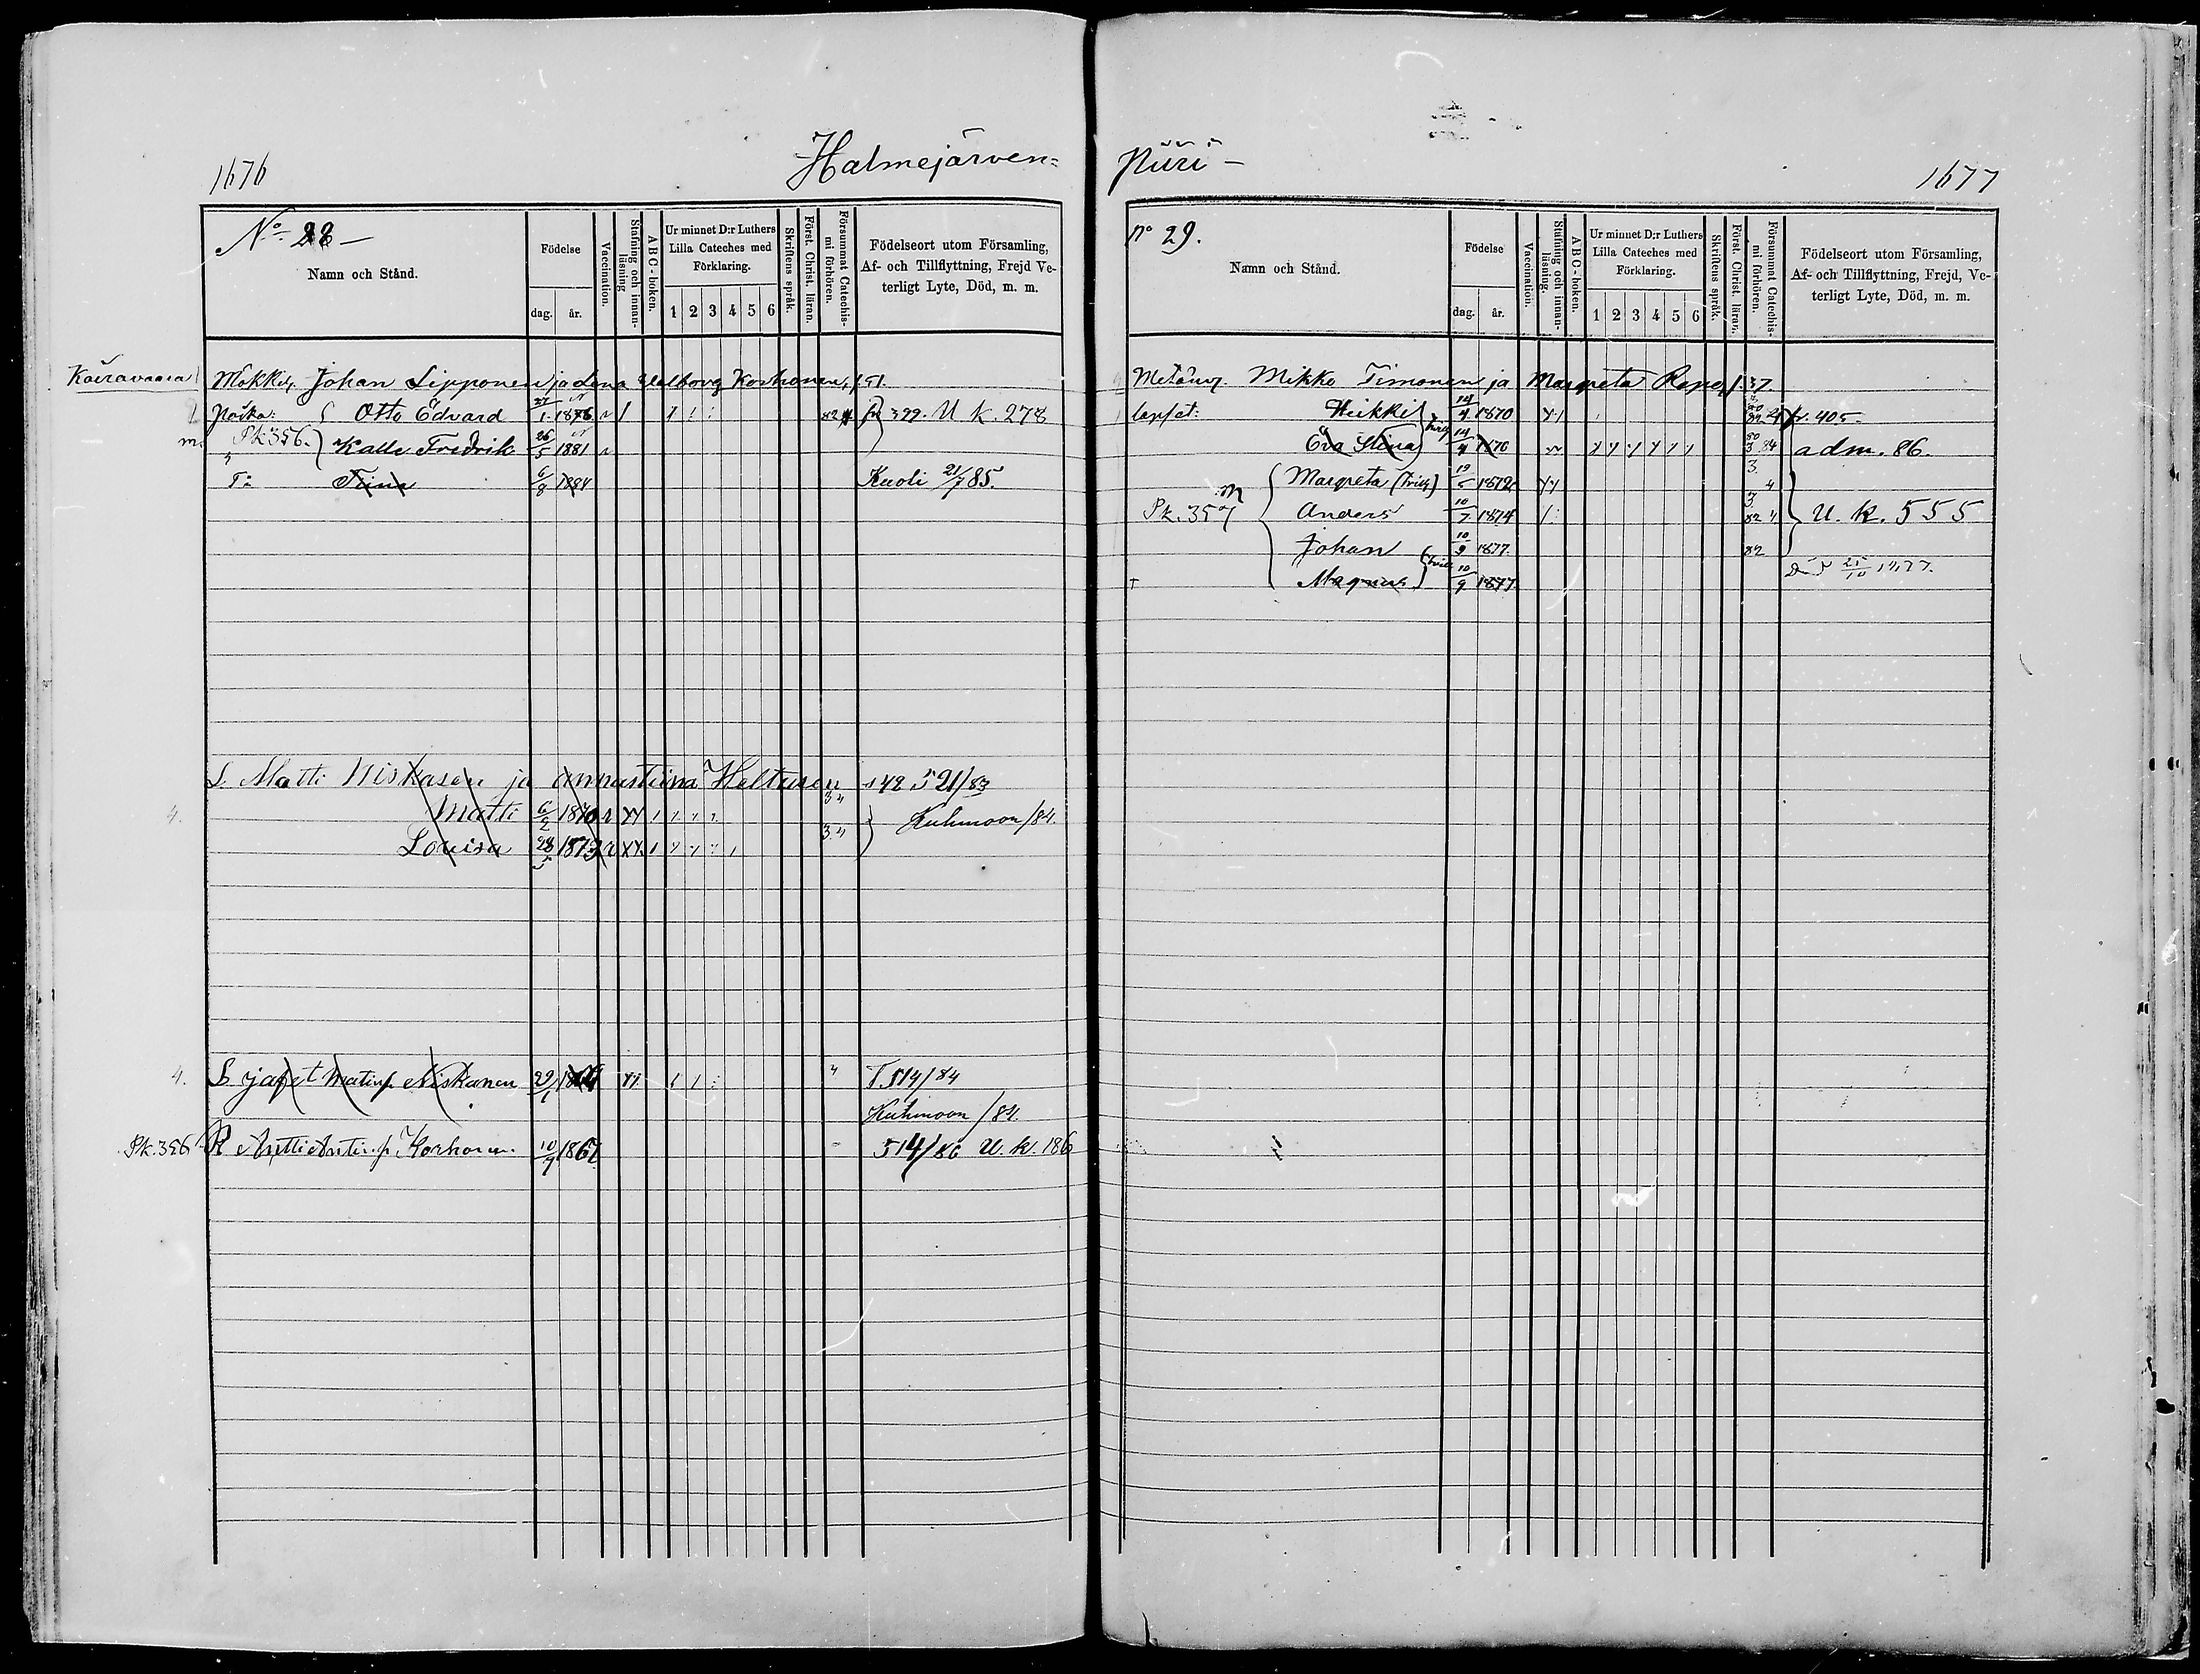 1676
Halmejärven=
No 28 —
Namn och Stånd.
Födelse
dag. år.
Vaccination.
Stafning och innan-läsning
ABC-boken.
Ur minnet D:r Luthers Lilla Cateches med Förklaring.
1 2 3 4 5 6
Skriftens språk.
Först. Christ. läran.
Försummat Catechis-mi förhören.
Födelseort utom Församling, Af- och Tillflyttning, Frejd Ve-terligt Lyte, Död, m. m.
Koiravaara
Johan Lipponen ja Lena Walborg Korhonen, f. 51.
Poika: Otto Edvard 1. 1876 399. U. k. 278
Pk 356. Kalle Fredrik 26/5 1881
T: Tiina 6/8 1884 Kuoli 21/7 85.
L. Matti Niskasen ja Annastiina Heltusen 48 521/83
4. Matti 6/2 1870 Kuhmoon /84.
Lovisa 28/5 1873
4. L. Jafet Matinp. Niskanen 29/1 T. 514/84
Kuhmoon /84.
Pk. 356 R Antti Antinp. Korhonen. 10/7 1867 514/86 U. k. 186
Piiri —
1677
No 29.
Namn och Stånd.
Födelse
dag. år.
Vaccination.
Stafning och innan-läsning.
ABC-boken.
Ur minnet D:r Luthers Lilla Cateches med Förklaring.
1 2 3 4 5 6
Skriftens språk.
Först. Christ. läran.
Försummat Catechis-mi förhören.
Födelseort utom Församling, Af- och Tillflyttning, Frejd, Ve-terligt Lyte, Död, m. m.
Mikko Timonen ja Margreta Repo, f. 37.
lapset: Heikki 14/4 1870 405.
Eva Stina 14/4 1870 adm. 86.
Margreta 1872
Pk. 357 Anders 10/7 1874 U. k. 555
Johan 10/9 1877.
Magnus 10/9 1877. 1877.